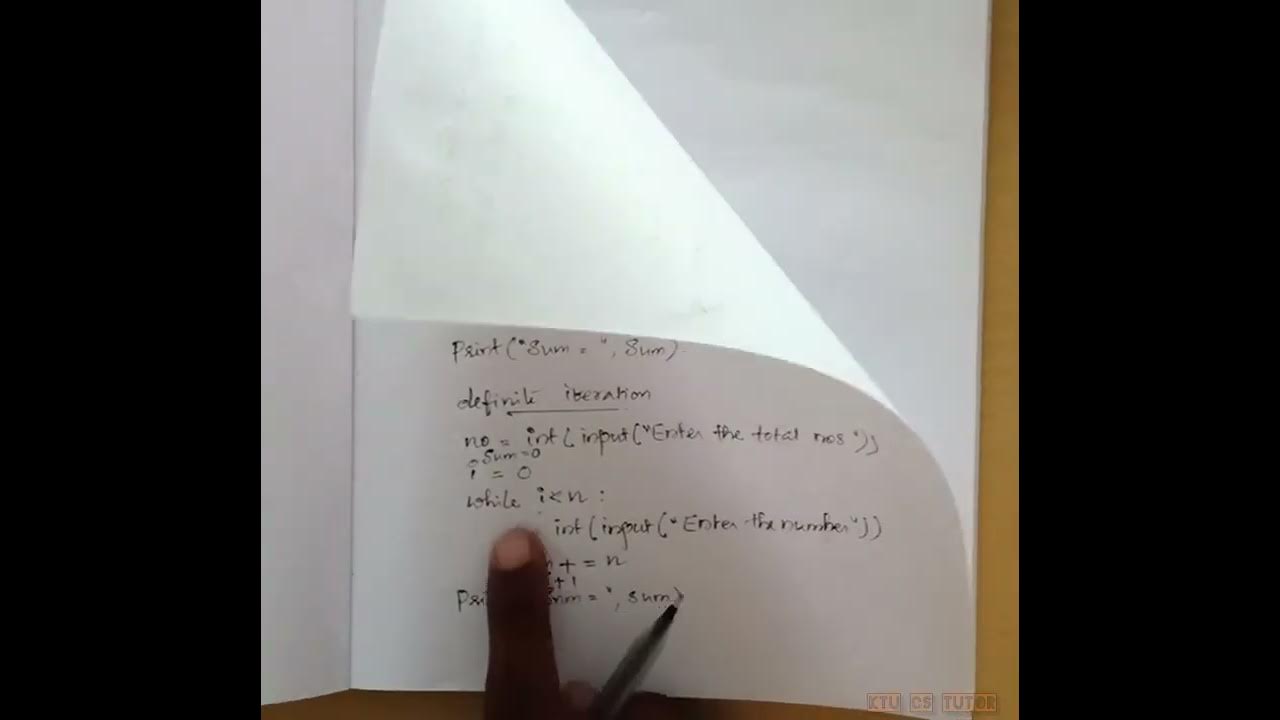 Print("Sum = ", Sum)
definite iteration
no = int(input("Enter the total nos"))
Sum=0
i = 0
while i<n :
int(input("Enter the number"))
+ = n
i+1
Sum = ", sum)
KTU CS TUTOR